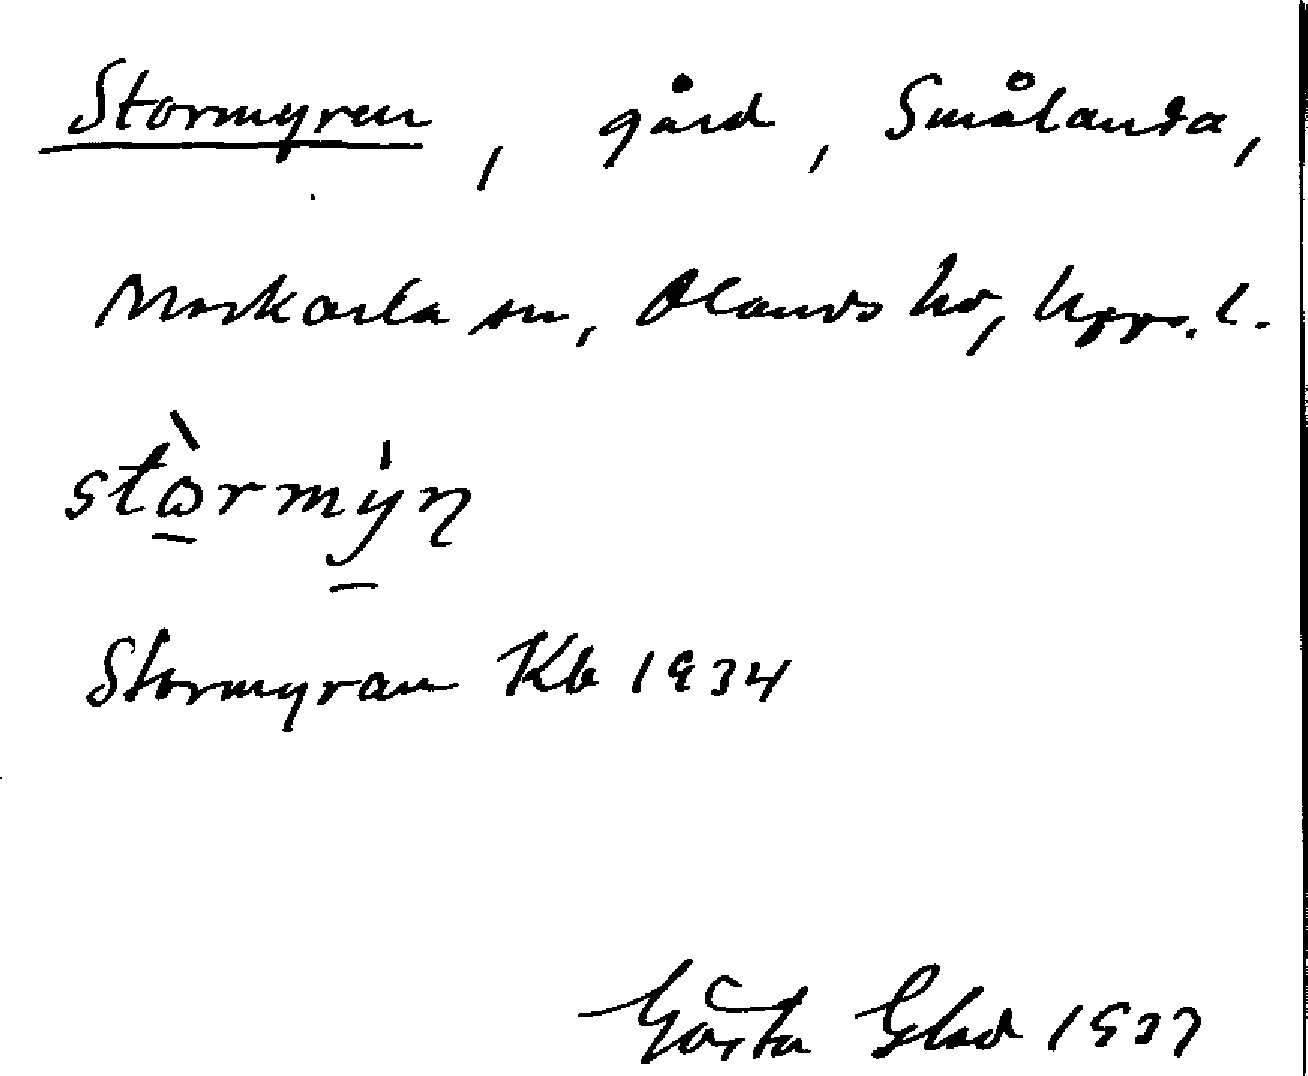 Stormyren, gård, Smålanda,
Morkarla sn, Olands hd, Upps. l.
stò̱rmy̱̍ṇ
Stormyran Kb 1934
Gösta Glad 1937